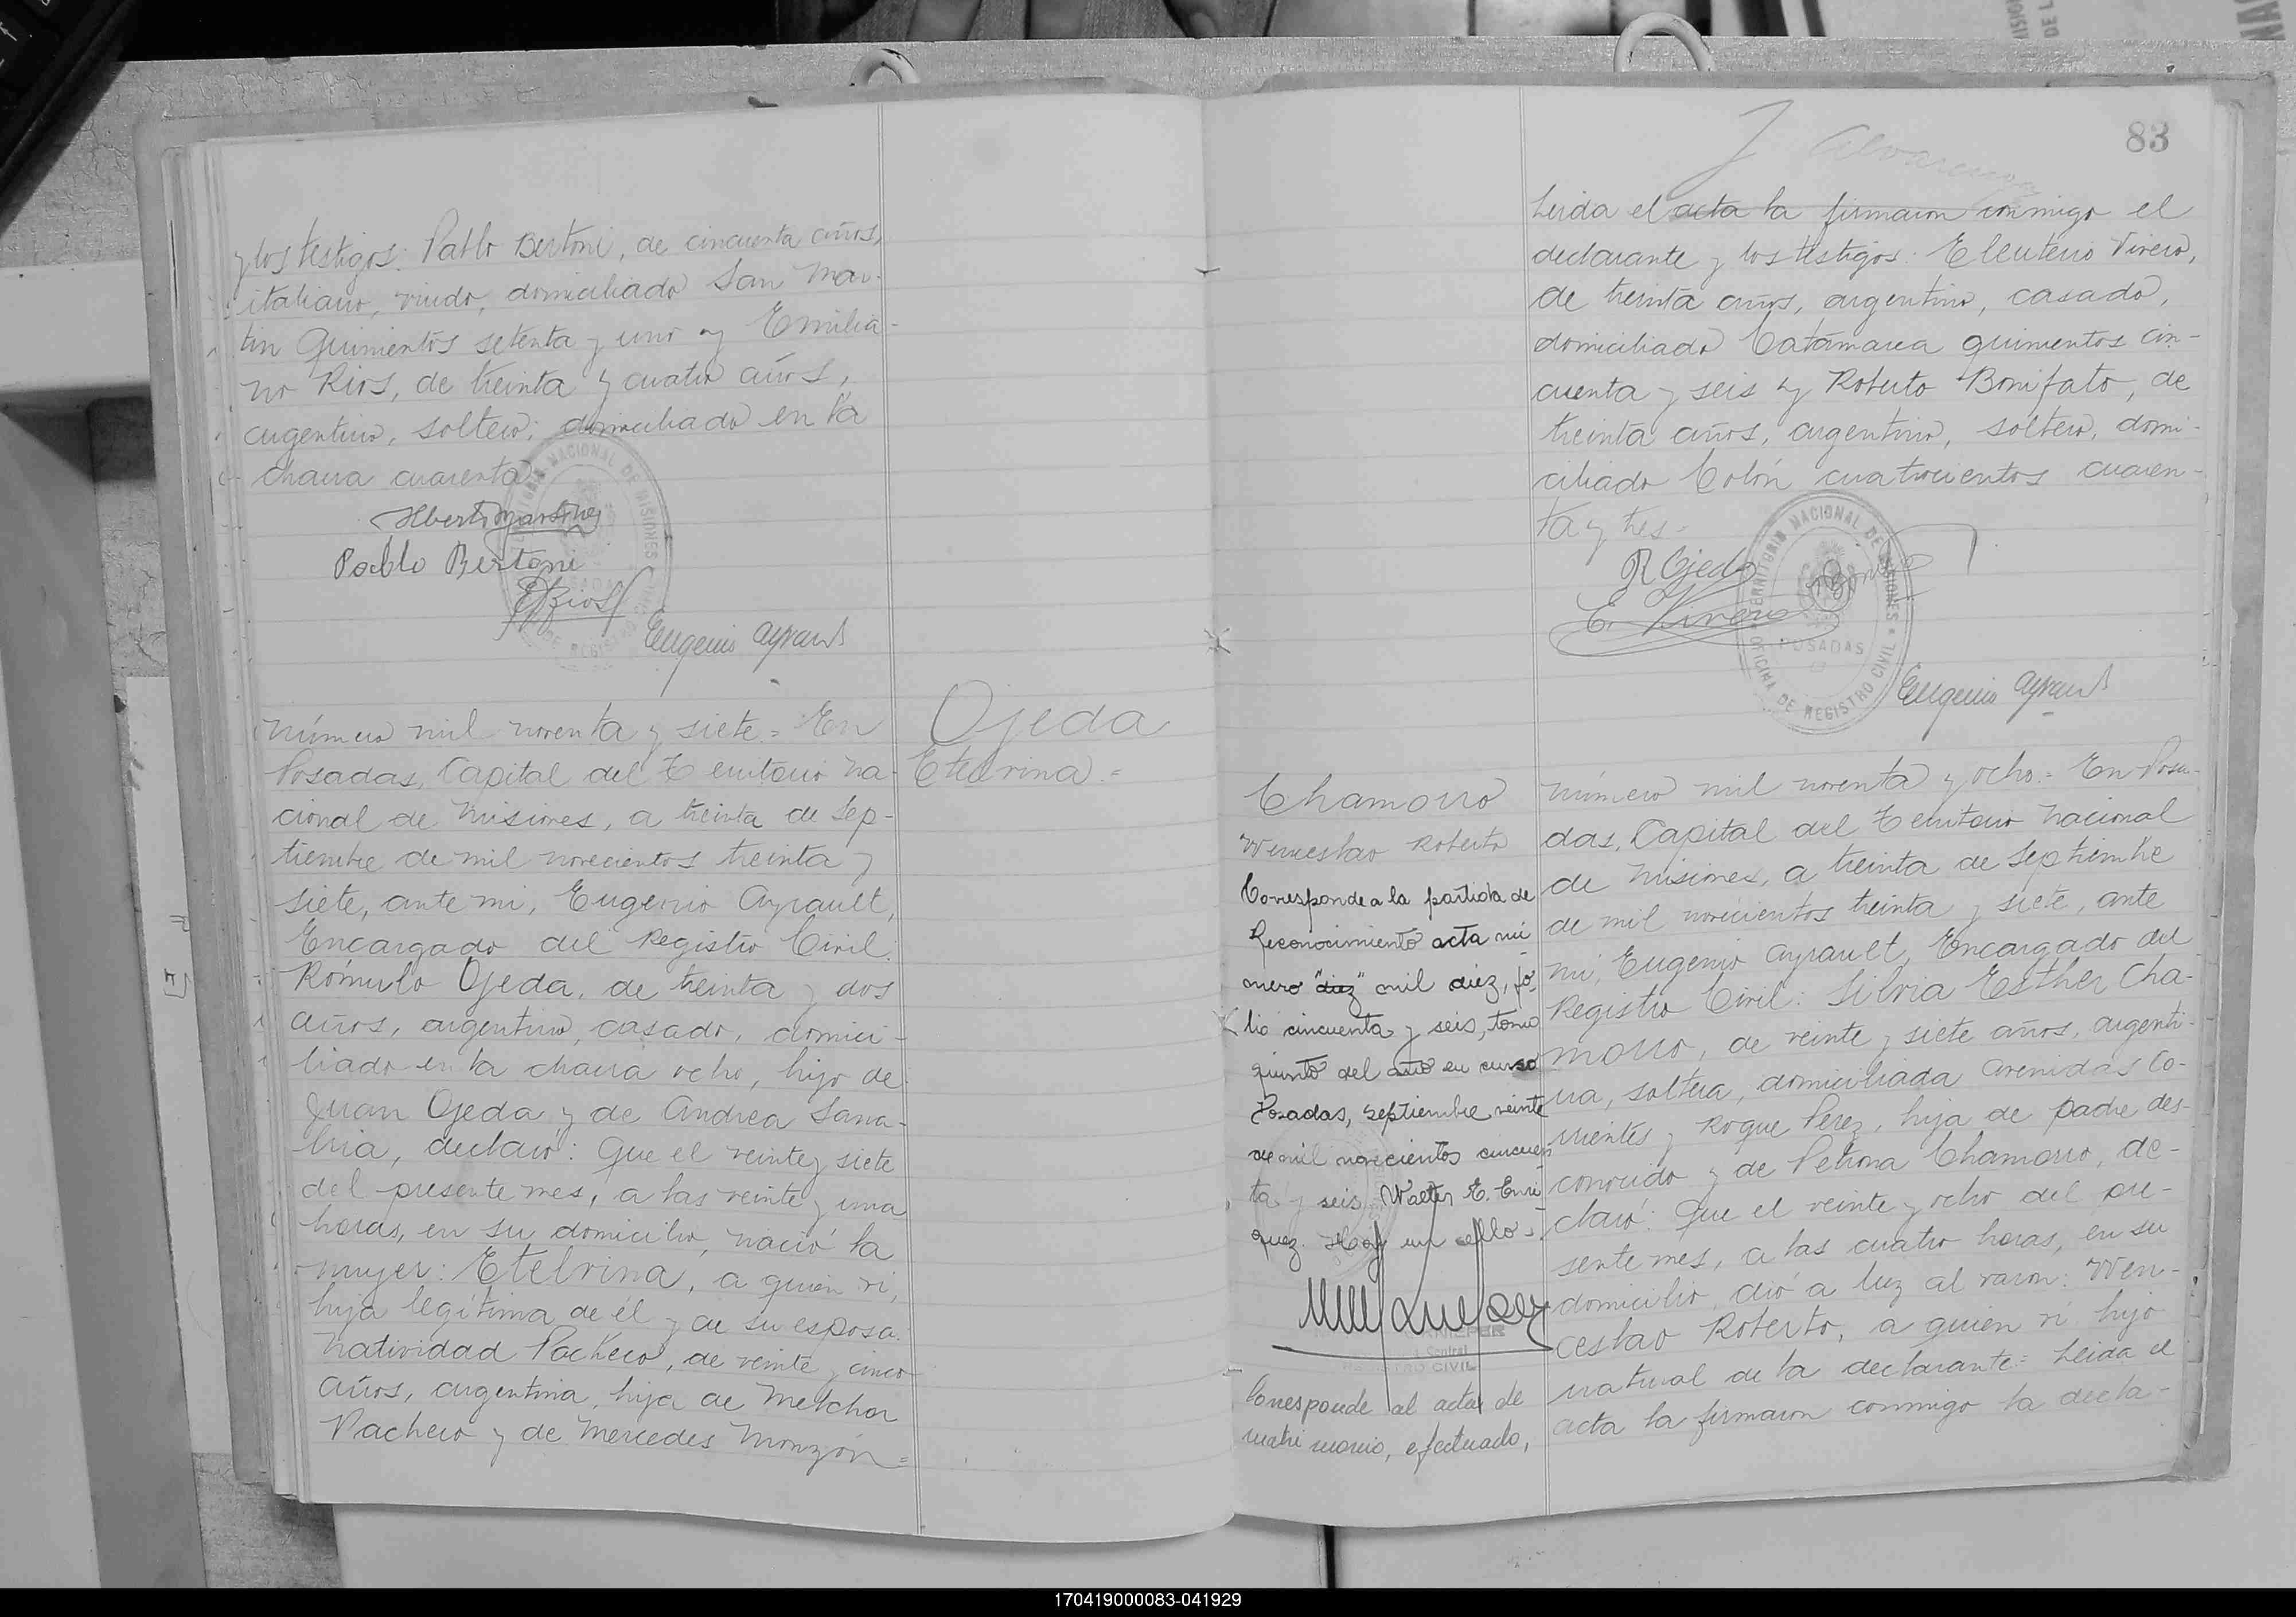 y los testigos: Pablo Bertoni, de cincuenta años,
italiano, viudo, domiciliado San Mar-
tin Quinientos setenta y uno y Emilia-
no Rios, de treinta y cuatro años,
argentino, soltero, domiciliado en la
chacra cuarenta
Pablo Bertoni
E Rios
Eugenio Ayrault
TERRITORIO NACIONAL DE MISIONES
POSADAS
número mil noventa y siete = En
Posadas, Capital del Territorio Na-
cional de Misiones, a treinta de Sep-
tiembre de mil novecientos treinta y
siete, ante mi, Eugenio Ayrault,
Encargado del Registro Civil:
Rómulo Ojeda, de treinta y dos
años, argentino, casado, domici-
liado en la chacra ocho, hijo de
Juan Ojeda y de Andrea Sana-
bria, declaró: Que el veinte y siete
del presente mes, a las veinte y una
horas, en su domicilio, nació la
mujer: Etelvina, a quien vi,
hija legítima de él y de su esposa
Natividad Pacheco, de veinte y cinco
años, argentina, hija de Melchor
Pacheco y de Mercedes Monzón =
Ojeda
Etelvina =
83
Leida el acta la firmaron conmigo el
declarante y los testigos: Eleuterio Vivero,
de treinta años, argentino, casado,
domiciliado Catamarca quinientos cin-
cuenta y seis y Roberto Bonifato, de
treinta años, argentino, soltero, domi-
ciliado Colón cuatrocientos cuaren-
ta y tres =
R Ojeda
E. Vivero
TERRITORIO NACIONAL DE MISIONES
POSADAS
OFICINA DE REGISTRO CIVIL
Eugenio Ayrault
Chamorro
Wenceslao Roberto
Corresponde a la partida de
Reconocimiento acta nú
mero "diez" mil diez, fo-
lio cincuenta y seis, tomo
quinto del año en curso
Posadas, septiembre veinte
de mil novecientos cincuen
ta y seis. Walter E. Enri
quez. Hay un sello =
REGISTRO CIVIL
Corresponde al acta de
matrimonio, efectuado,
número mil noventa y ocho = En Posa-
das, Capital del Territorio Nacional
de Misiones, a treinta de Septiembre
de mil novecientos treinta y siete, ante
mi, Eugenio Ayrault, Encargado del
Registro Civil: Silvia Esther Cha-
morro, de veinte y siete años, argenti-
na, soltera, domiciliada Avenidas Co-
rrientes y Roque Perez, hija de padre des-
conocido y de Petrona Chamorro, de-
claró: Que el veinte y ocho del pre-
sente mes, a las cuatro horas, en su
domicilio, dió a luz al varon: Wen-
ceslao Roberto, a quien vi hijo
natural de la declarante = Leida el
acta la firmaron conmigo la decla-
170419000083-041929